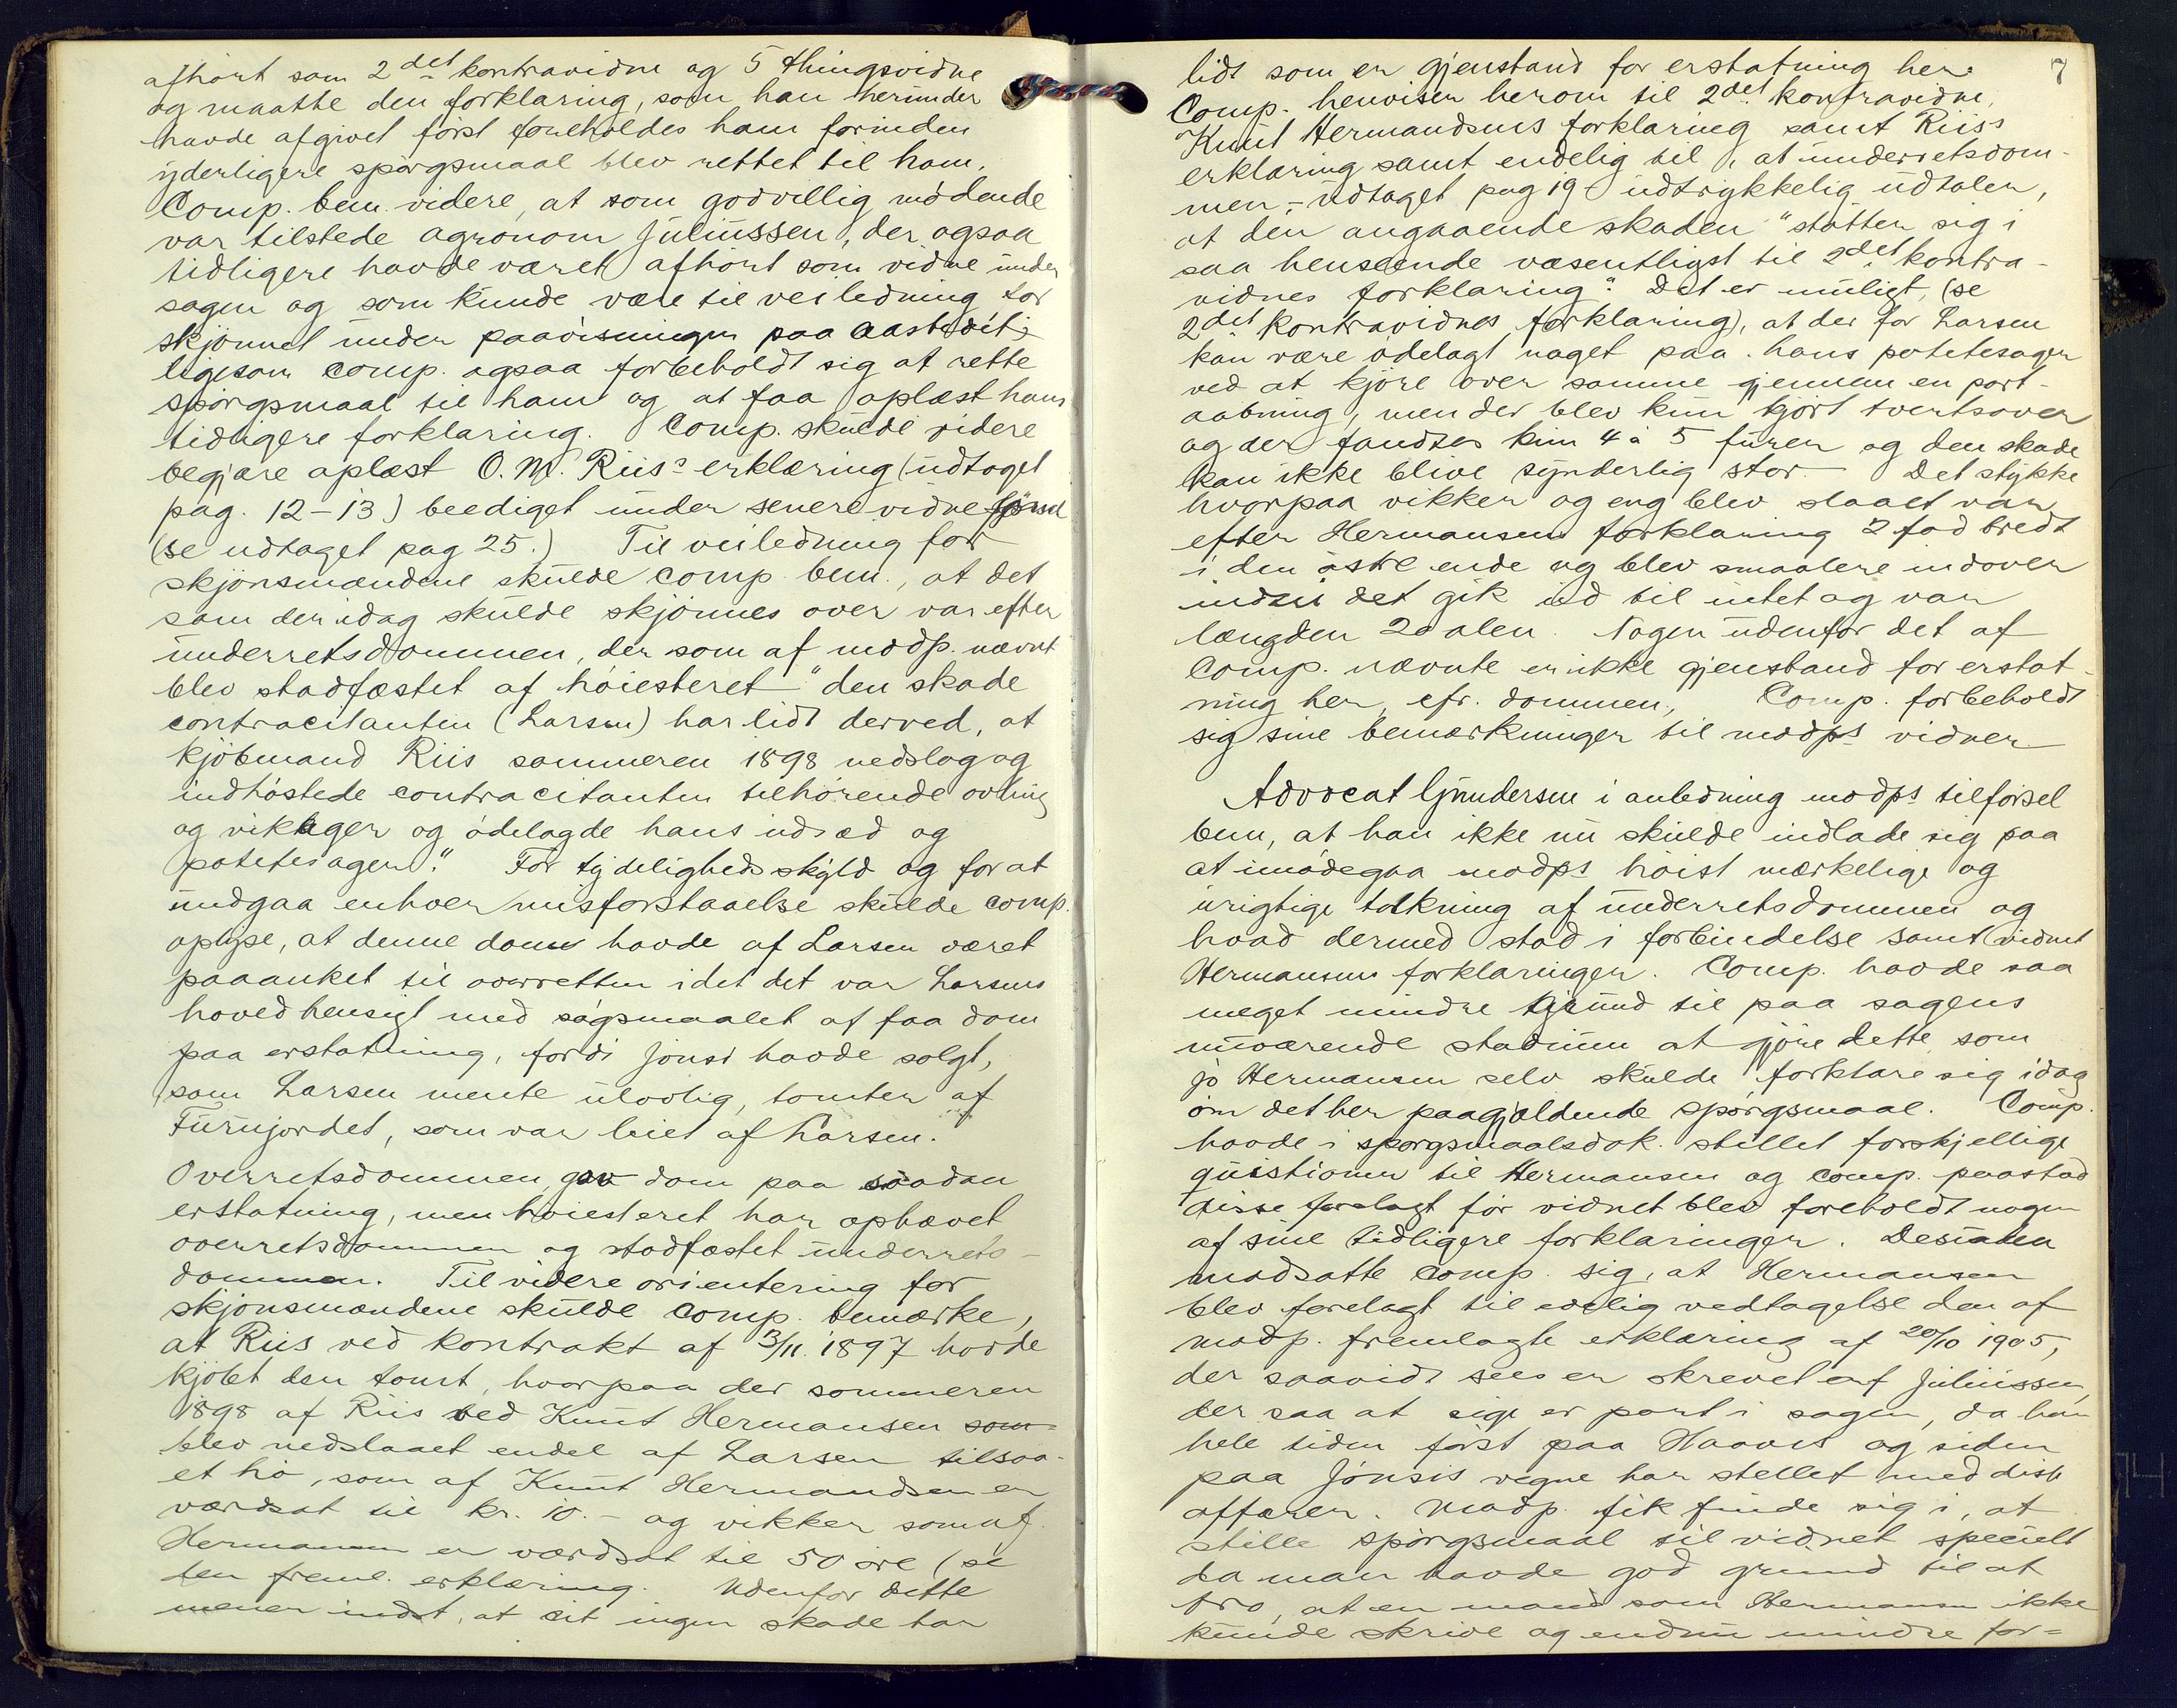 afhört som 2det kontravidne og 5 thingsvidne
og maatte den forklaring, som han herunder
havde afgivet först foreholdes ham forinden
yderligere spörgsmaal blev rettet til ham.
Comp. bem. videre, at som godvillig mödende
var tilstede agronom Juliussen, der ogsaa
tidligere havde været afhört som vidne under
sagen og som kunde være til veiledning for
skjönnet under paavisningen paa aastedet;
ligesom comp. ogsaa forbeholdt sig at rette
spörgsmaal til ham og at faa oplæst hans
tidligere forklaring. Comp. skulde videre
begjære oplæst O. M. Riis's erklæring (udtoget
pag. 12-13) beediget under senere vidneförsel
(se udtoget pag 25.) Til veiledning for
skjönsmændene skulde comp. bem., at det
som der idag skulde skjönnes over var efter
underretsdommen, der som af modp. nævnt
blev stadfæstet af höiesteret "den skade
contracitanten (Larsen) har lidt derved, at
kjöbmand Riis sommeren 1898 nedslog og
indhöstede contracitanten tilhörende avling
og vikager og ödelagde hans udsæd og
potetesager." For tydeligheds skyld og for at
undgaa enhver misforstaaelse skulde comp.
oplyse, at denne dom havde af Larsen været
paaanket til overretten idet det var Larsens
hovedhensigt med sögsmaalet at faa dom
paa erstatning, fordi Jönsi havde solgt,
som Larsen mente ulovlig, tomten af
Furujordet, som var leiet af Larsen.
Overretsdommen gav dom paa saadan
erstatning, men höiesteret har ophævet
overretsdommen og stadfæstet underrets-
dommen. Til videre orientering for
skjönsmændene skulde comp. bemærke,
at Riis ved kontrakt af 3/11. 1897 havde
kjöbt den tomt, hvorpaa der sommeren
1898 af Riis ved Knut Hermansen som
blev nedslaaet endel af Larsen tilsaa-
et hö, som af Knut Hermandsen er
værdsat til kr. 10.- og vikker som af
Hermansen er værdsat til 50 öre (se
den freml. erklæring. Udenfor dette
mener indst, at dit ingen skade har
7
lidt som er gjenstand for erstatning her.
Comp. henviser herom til 2det kontravidne,
Knut Hermandsens forklaring samt Riis's
erklæring samt endelig til, at underretsdom-
men,- udtoget pag 19 - udtrykkelig udtaler,
at den angaaende skaden "stötter sig i
saa henseende væsentligst til 2det kontra-
vidnes forklaring." Det er muligt, (se
2det kontravidnes forklaring), at der for Larsen
kan være ödelagt noget paa hans potetesager
ved at kjöre over samme gjennem en port-
aabning, men der blev kun kjört tvertsover
og der fandtes kun 4 à 5 furer og den skade
kan ikke blive synderlig stor. Det stykke
hvorpaa vikker og eng blev slaaet var
efter Hermansens forklaring 2 fod bredt
i den östre ende og blev smalere indover
indtil det gik ud til intet og var
længden 20 alen. Nogen udenfor det af
Comp. nævnte er ikke gjenstand for erstat-
ning her, cfr. dommen. Comp. forbeholdt
sig sine bemærkninger til modps vidner
Advocat Gundersen i anledning modps tilförsel
bem, at han ikke nu skulde indlade sig paa
at imödegaa modps höist mærkelige og
urigtige tolkning af underretsdommen og
hvad dermed stod i forbindelse samt vidnet
Hermansens forklaringer. Comp. havde saa
meget mindre grund til paa sagens
nuværende stadium at gjöre dette, som
jo Hermansen selv skulde forklare sig idag
om det her paagjældende spörgsmaal. Comp.
havde i spörgsmaalsdok. stillet forskjellige
quistioner til Hermansen og comp. paastod
disse forelagt för vidnet blev foreholdt nogen
af sine tidligere forklaringer. Desuden
modsatte comp. sig, at Hermansen
blev forelagt til edelig vedtagelse den af
modp. fremlagte erklæring af 20/10 1905,
der saavidt sees er skrevet af Juliussen,
der saa at sige er part i sagen, da han
hele tiden först paa Haavos og siden
paa Jönsis vegne har stellet med disse
affærer. Modp. fik finde sig i, at
stille spörgsmaal til vidnet specielt
da man havde god grund til at
tro, at en mand som Hermansen ikke
kunde skrive og endnu mindre for=